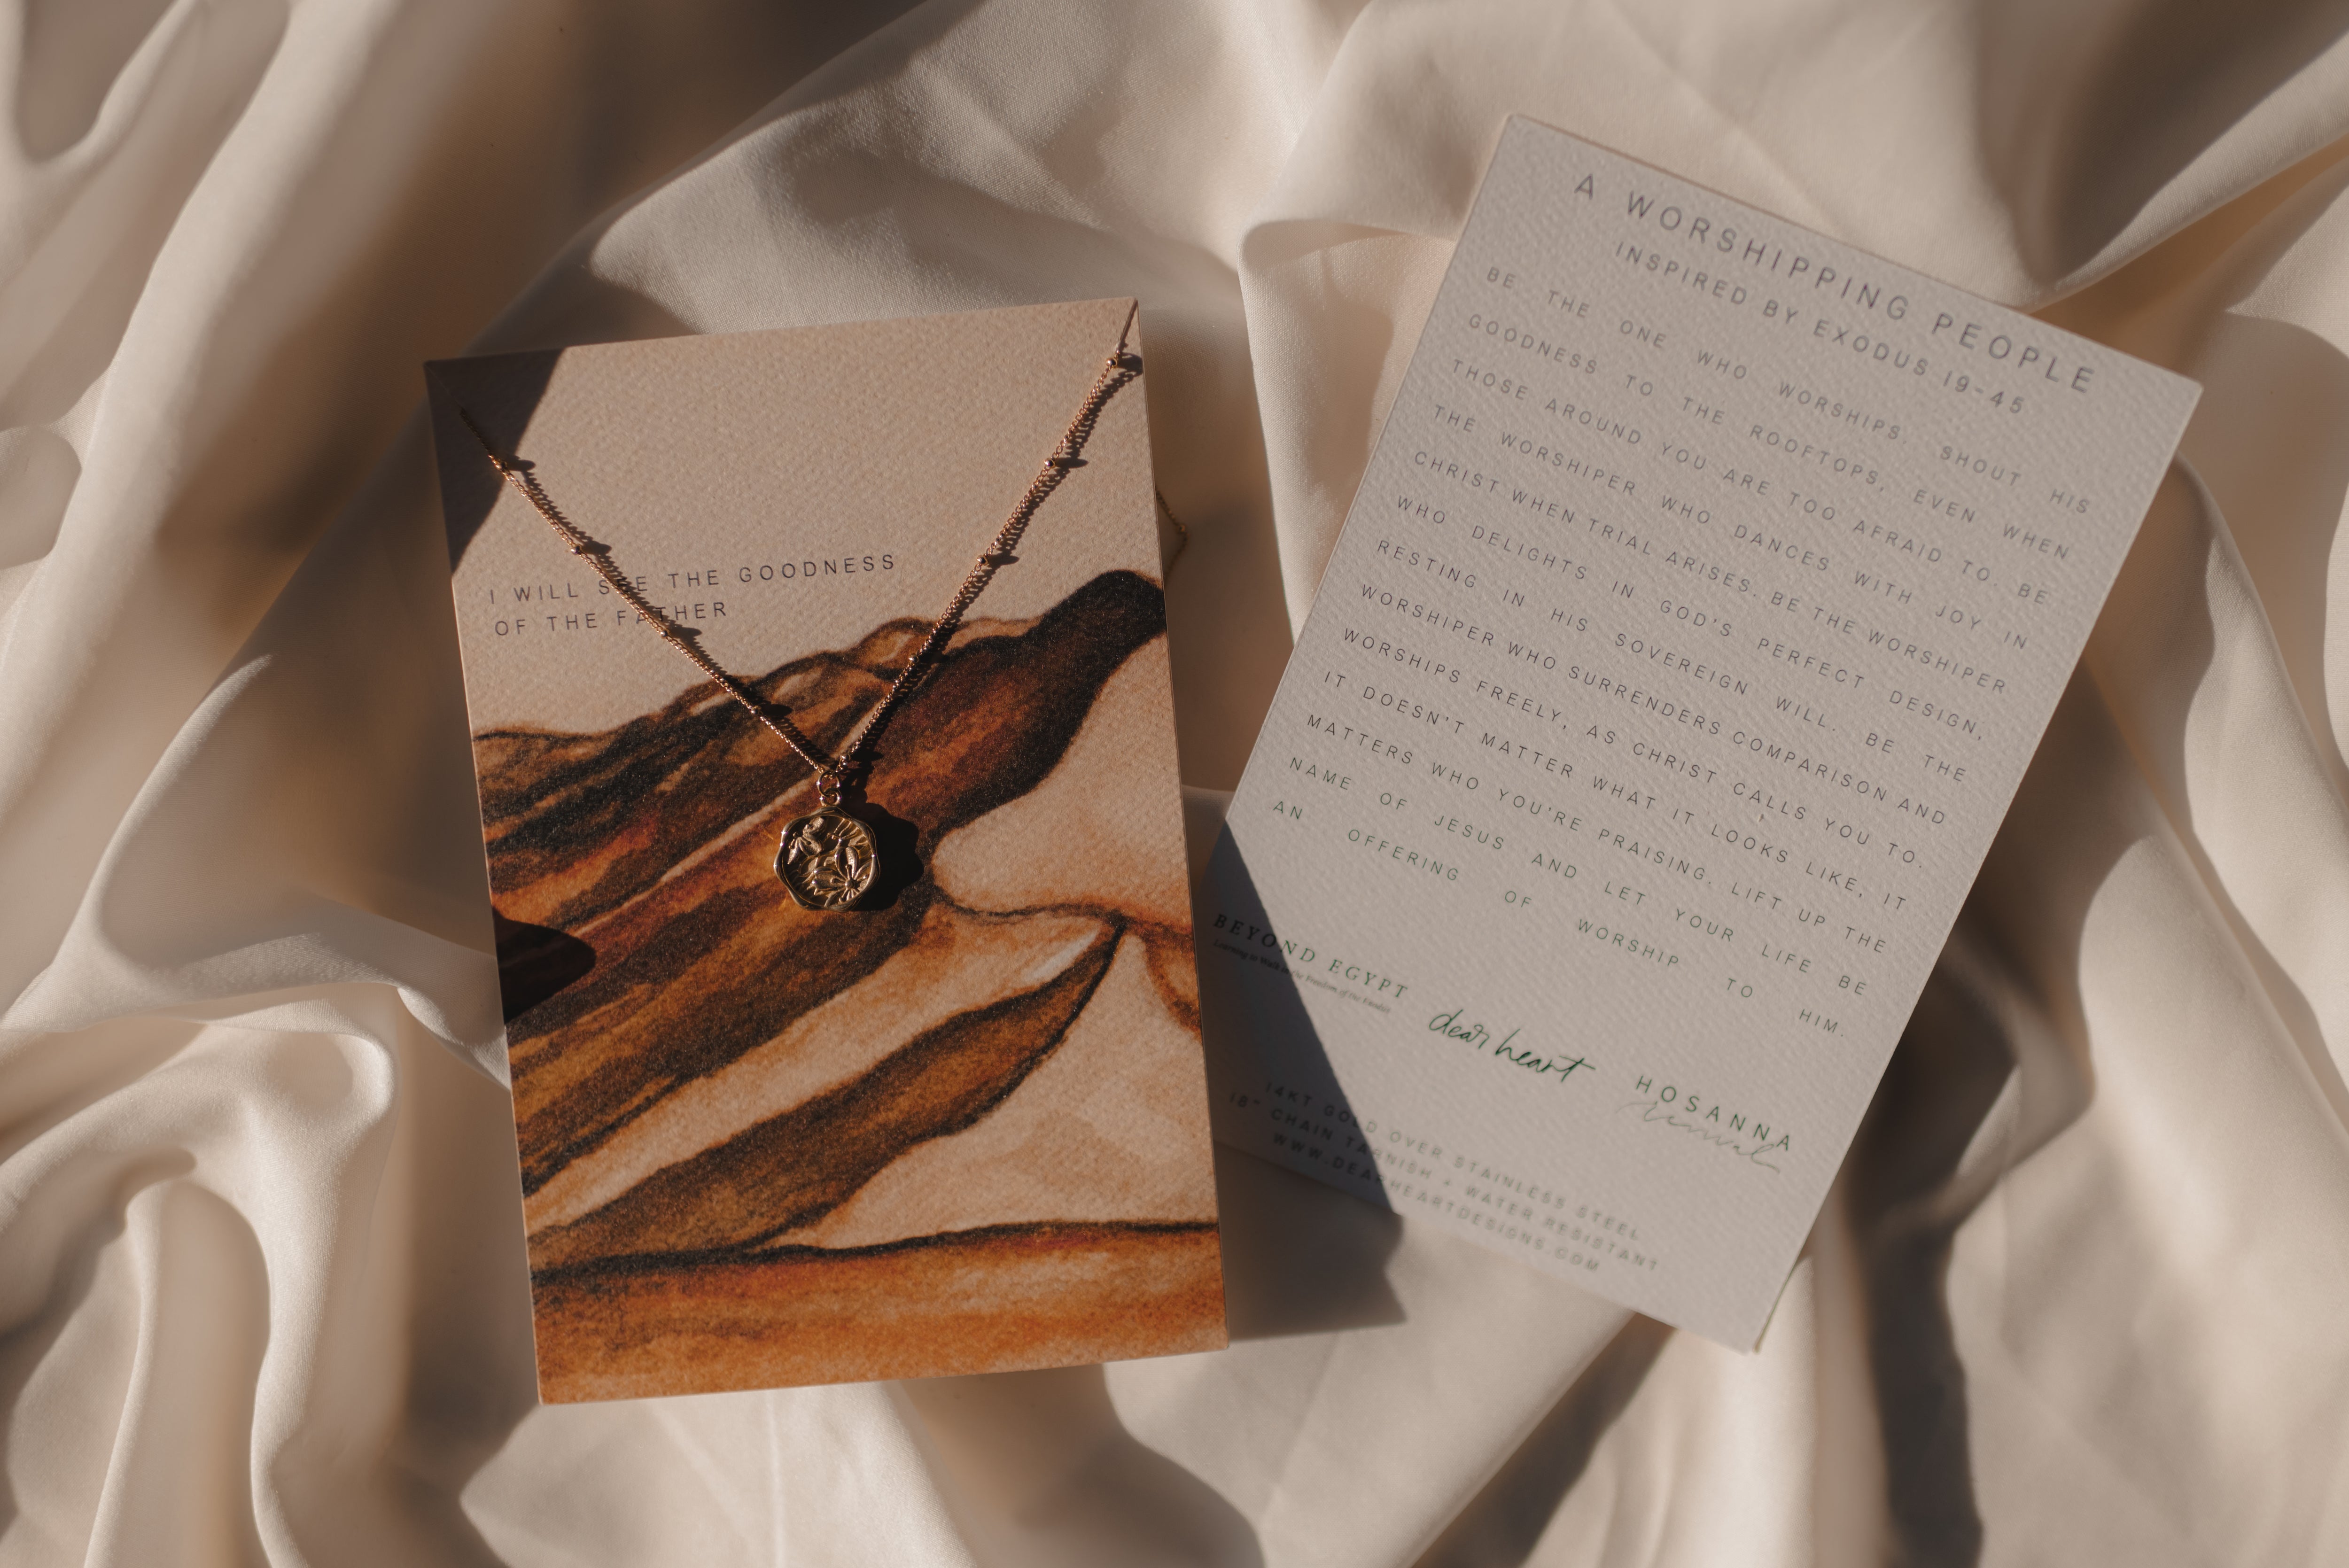 I WILL SEE THE GOODNESS
OF THE FATHER
A WORSHIPPING PEOPLE
INSPIRED BY EXODUS 19-45
BE THE ONE WHO WORSHIPS. SHOUT HIS
GOODNESS TO THE ROOFTOPS, EVEN WHEN
THOSE AROUND YOU ARE TOO AFRAID TO. BE
THE WORSHIPER WHO DANCES WITH JOY IN
CHRIST WHEN TRIAL ARISES. BE THE WORSHIPER
WHO DELIGHTS IN GOD'S PERFECT DESIGN,
RESTING IN HIS SOVEREIGN WILL. BE THE
WORSHIPER WHO SURRENDERS COMPARISON AND
WORSHIPS FREELY, AS CHRIST CALLS YOU TO.
IT DOESN'T MATTER WHAT IT LOOKS LIKE, IT
MATTERS WHO YOU'RE PRAISING. LIFT UP THE
NAME OF JESUS AND LET YOUR LIFE BE
AN OFFERING OF WORSHIP TO HIM.
BEYOND EGYPT
Learning to Walk in the Freedom of the Exodus
dear heart
HOSANNA
revival
14KT GOLD OVER STAINLESS STEEL
18" CHAIN TARNISH + WATER RESISTANT
WWW.DEARHEARTDESIGNS.COM